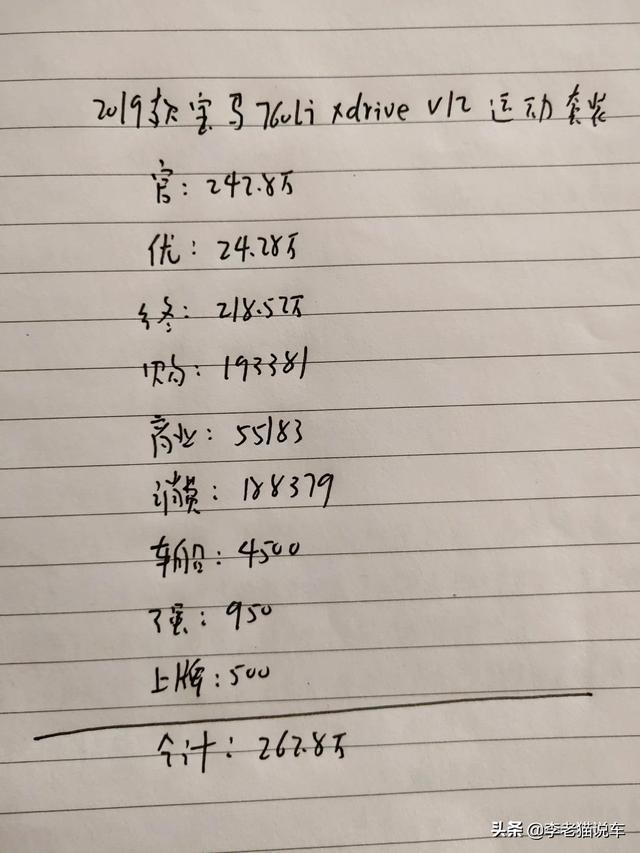 2019款宝马760Li xdrive V12 运动套装
官:242.8万
优:24.28万
终:218.52万
购:193381
商业:55183
消费:188379
车船:4500
强:950
上牌:500
合计:262.8万
头条 @李老猫说车